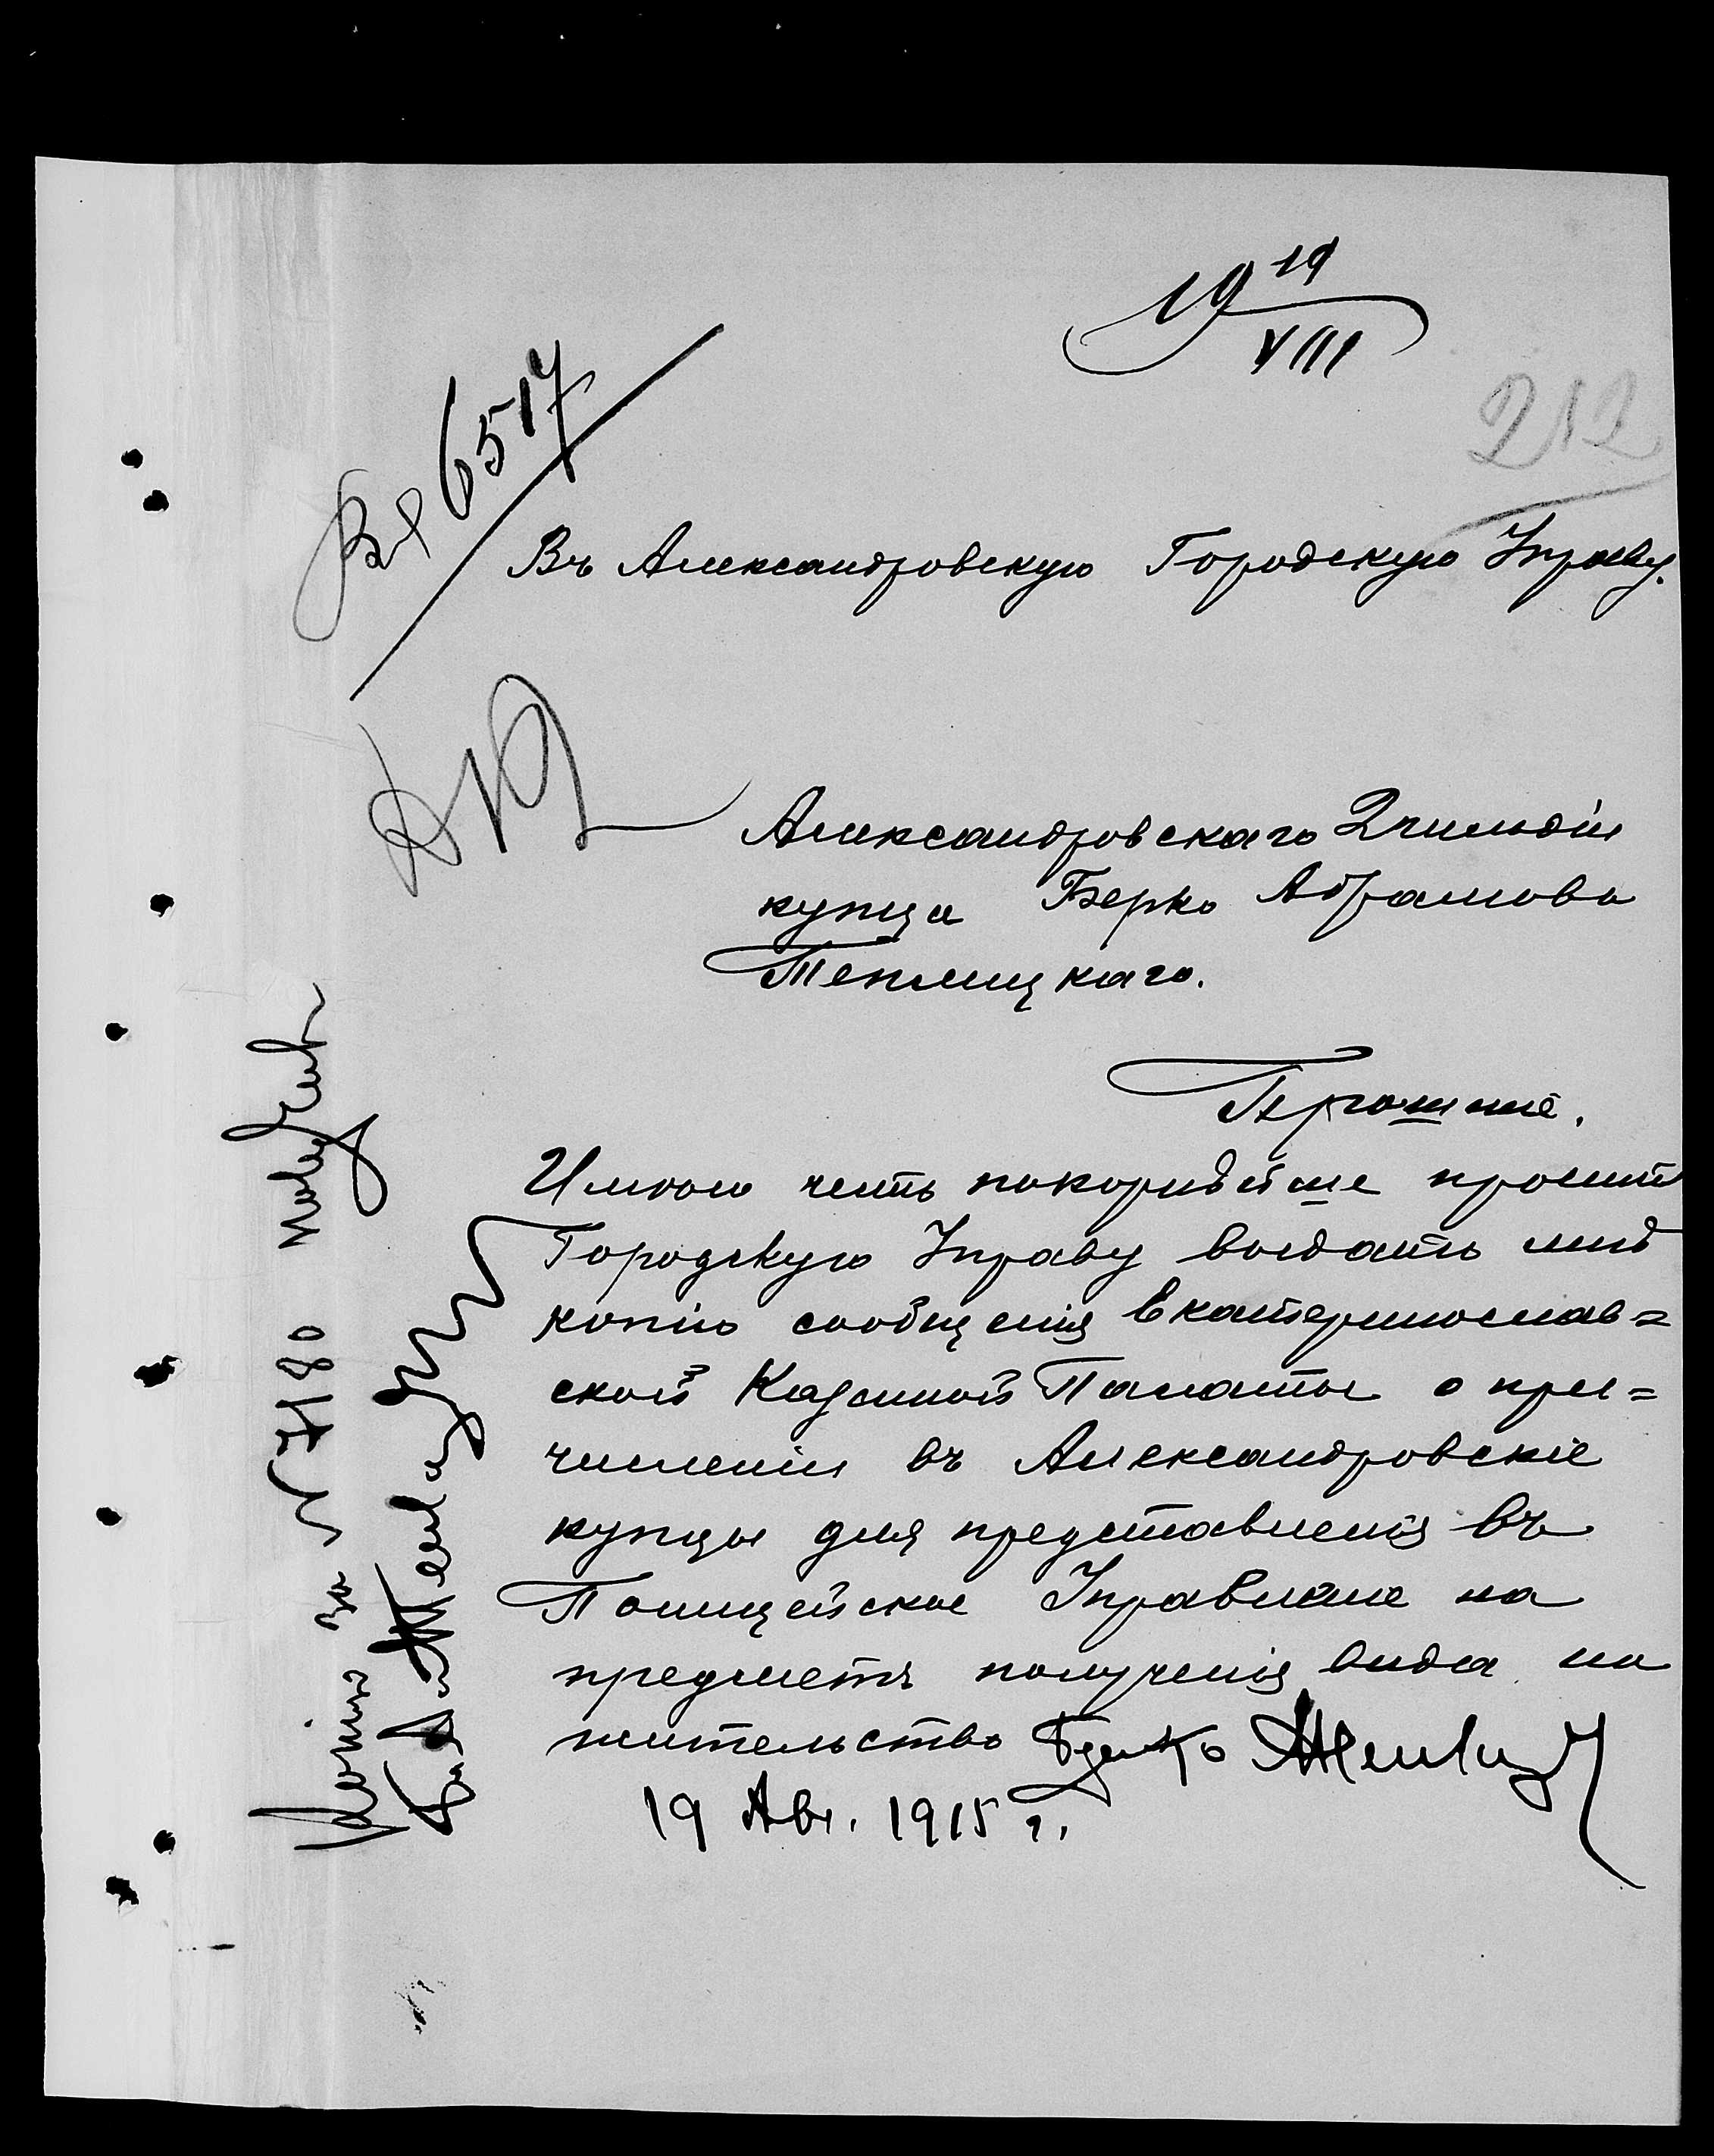 19 19
VIII
212
Вх 6517
Въ Александровскую Городскую Управу.
Александровскаго 2 гильдіи
купца Берко Абрамова
Теплицкаго.
Прошеніе.
Имѣю честь покорнѣйше просить
Городскую Управу выдать мнѣ
копію сообщенія Екатеринослав=
ской Казенной Палаты о при=
численіи въ Александровскіе
купцы для представленія въ
Полицейское Управленіе на
предметъ полученія вида на
жительство Берко
19 Авг. 1915 г.
Копію за № 7180 получилъ